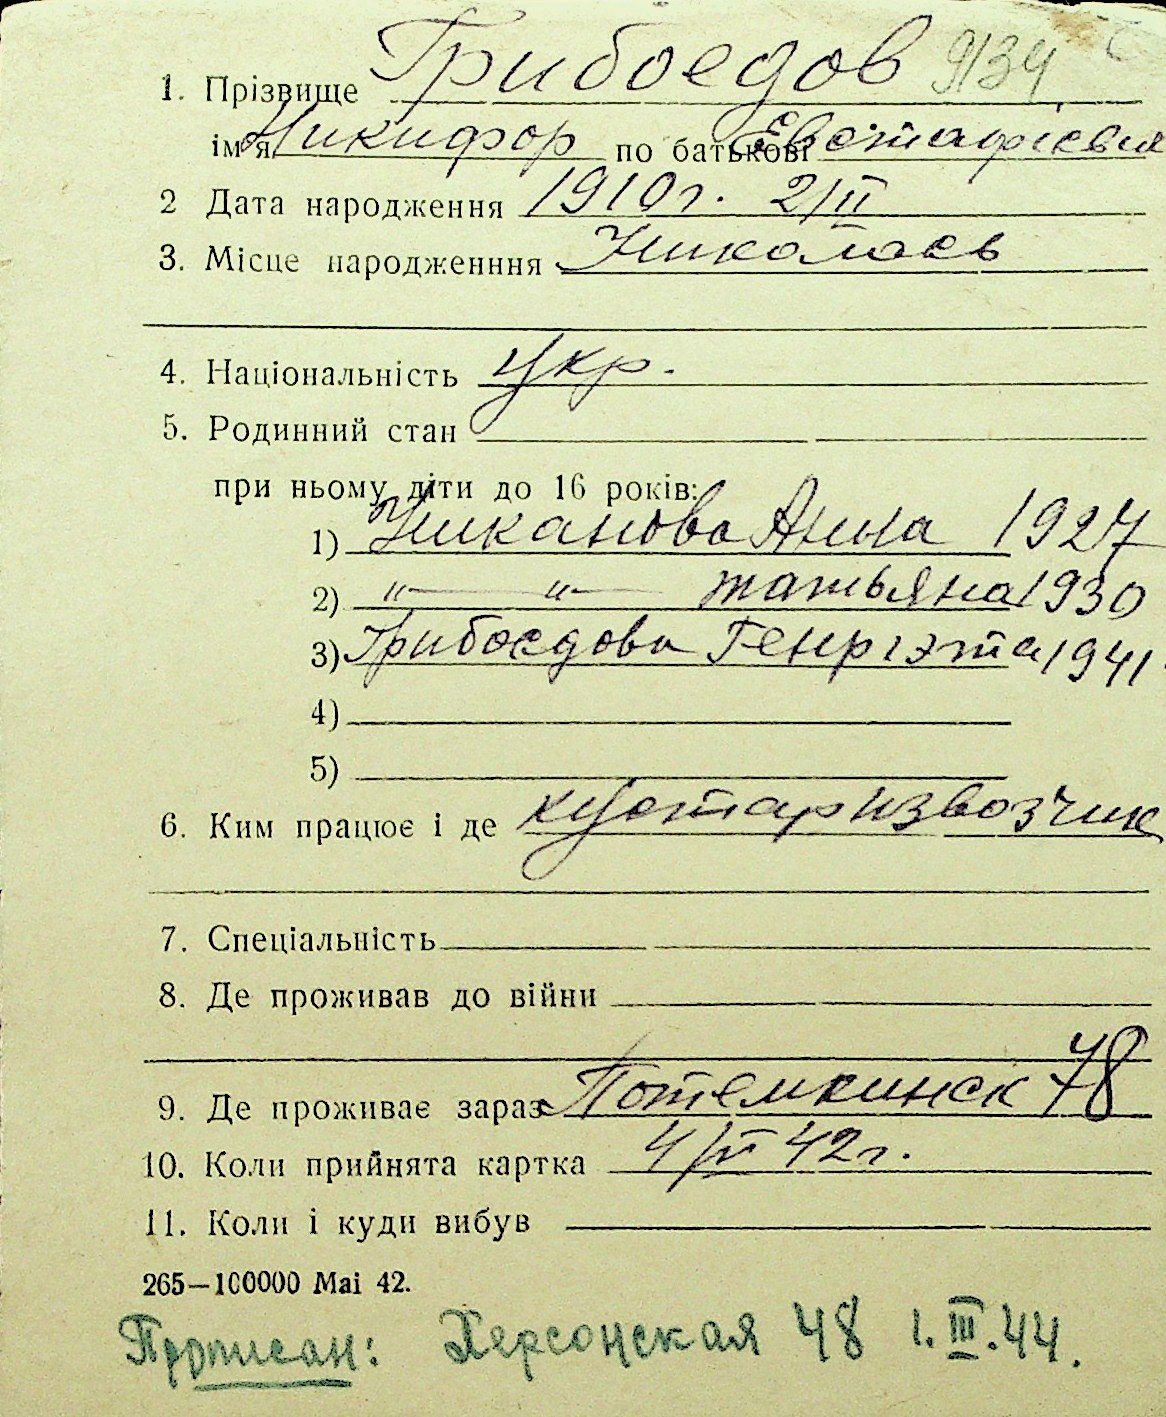 1. Прізвище Грибоедов 9134
ім'я Никифор по батькові Евстафієвич
2 Дата народження 1910г. 2/II
3. Місце народженння Николаев
4. Національність Укр.
5. Родинний стан
при ньому діти до 16 років:
1) Никанова Анна 1927
2) "— "— татьяна 1930
3) Грибоедова Генргэта 1941
4)
5)
6. Ким працює і де кустар извозчик
7. Спеціальність
8. Де проживав до війни
9. Де проживає зараз Потемкинск 78
10. Коли прийнята картка 4/VI 42г.
11. Коли і куди вибув
265—100000 Mai 42.
Прописан: Херсонская 48 1.III.44.